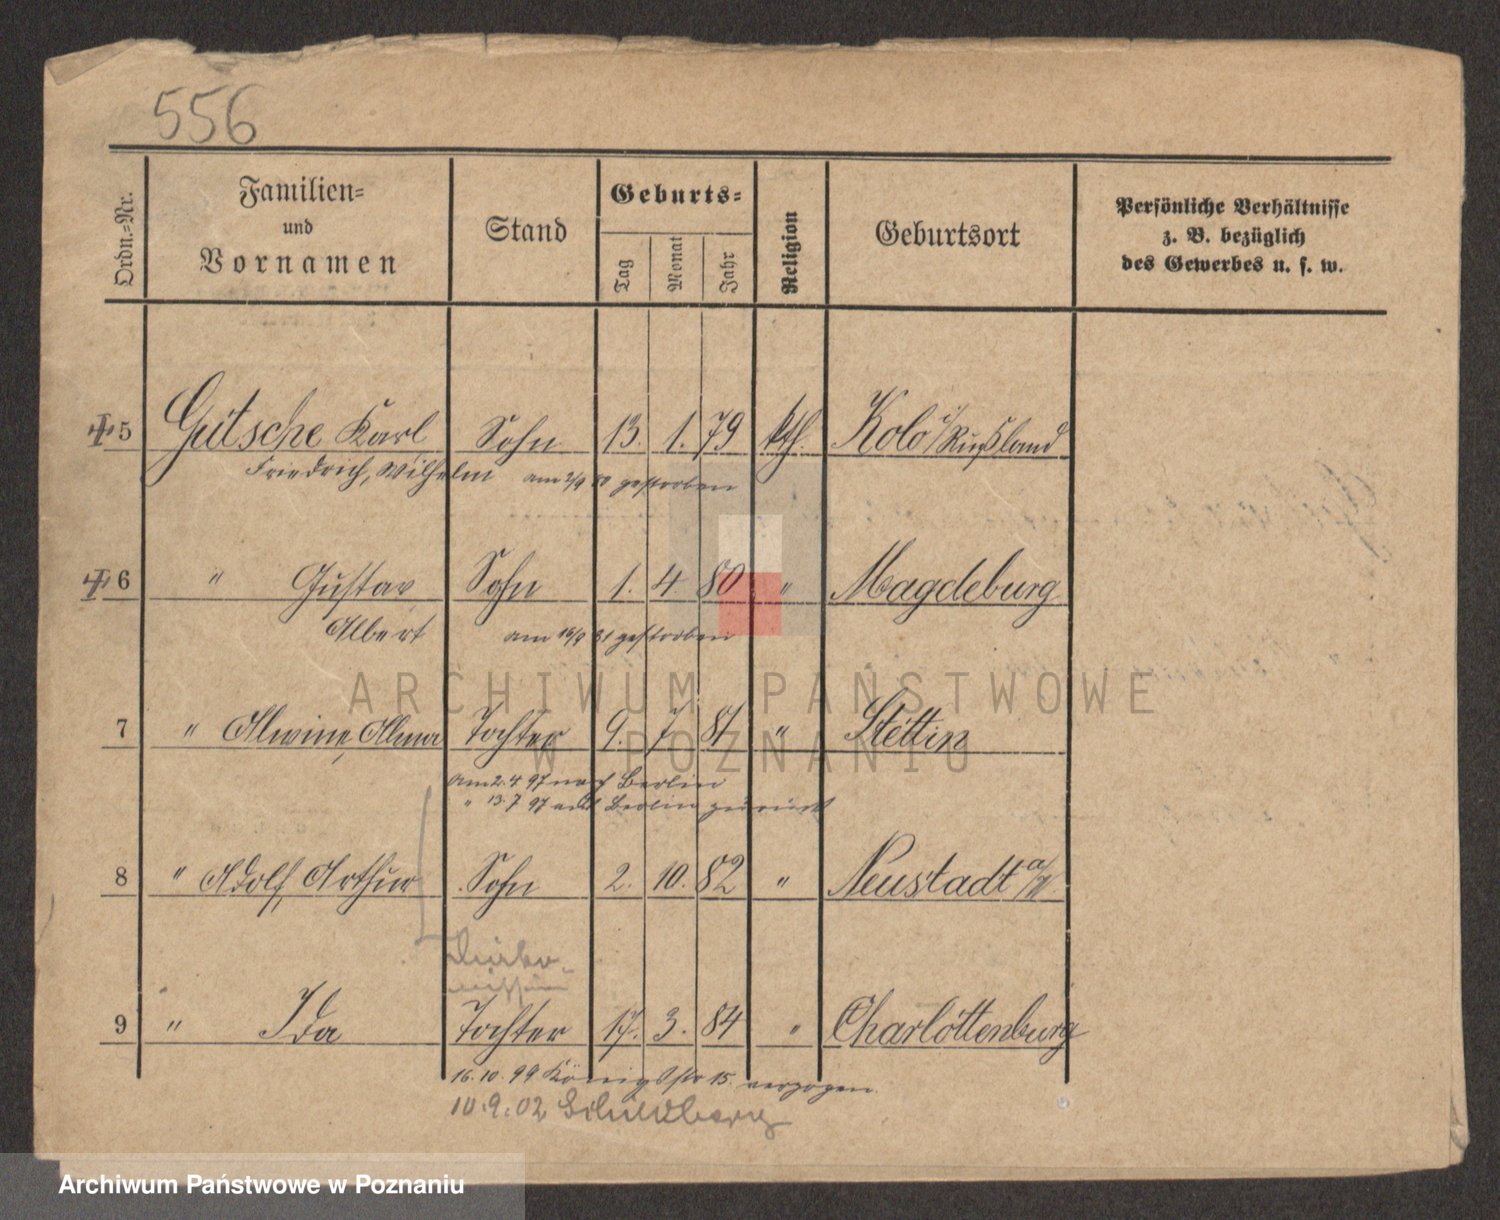 556
Ordn.=Nr.
Familien=
und
Vornamen
Stand
Geburts=
Tag
Monat
Jahr
Religion
Geburtsort
Persönliche Verhältnisse
z. B. bezüglich
des Gewerbes u. s. w.
5 Gutsche Karl Sohn 13. 1. 79 kth. Kolo i/Rußland
Friedrich, Wilhelm am gestorben
6 " Gustav Sohn 1. 4 80 " Magdeburg
Albert am gestorben
7 " Alwine, Alma Tochter 9. 7 81 " Stettin
am 2.4 97 nach Berlin
" 13.7 97 aus Berlin zurück
8 " Adolf, Arthur Sohn 2. 10. 82 " Neustadt
9 " Ida Tochter 17. 3. 84 " Charlottenburg
16.10.99 Königstr 15. verzogen.
10.9.02 Schildberg
ARCHIWUM PAŃSTWOWE
W POZNANIU
Archiwum Państwowe w Poznaniu